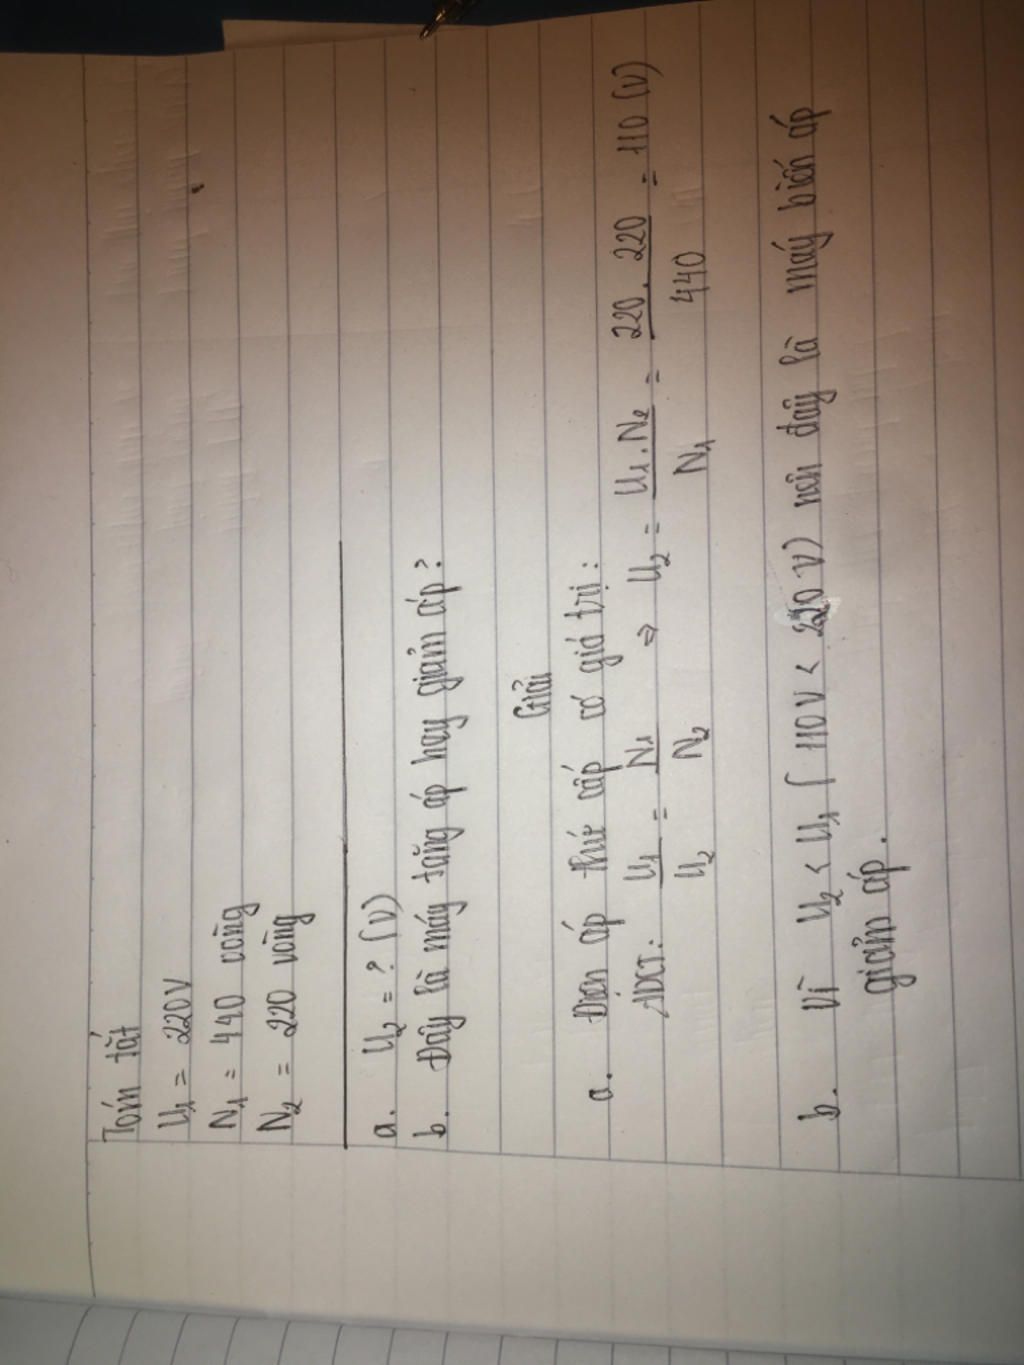 Tóm tắt
U₁ = 220V
N₁ = 440 vòng
N₂ = 220 vòng
a. U₂ = ? (V)
b. Đây là máy tăng áp hay giảm áp?
Giải
a. Điện áp thứ cấp có giá trị:
ADCT: U₁/U₂ = N₁/N₂ ⇒ U₂ = U₁.N₂/N₁ = 220.220/440 = 110 (V)
b. Vì U₂ < U₁ (110V < 220V) nên đây là máy biến áp
giảm áp.